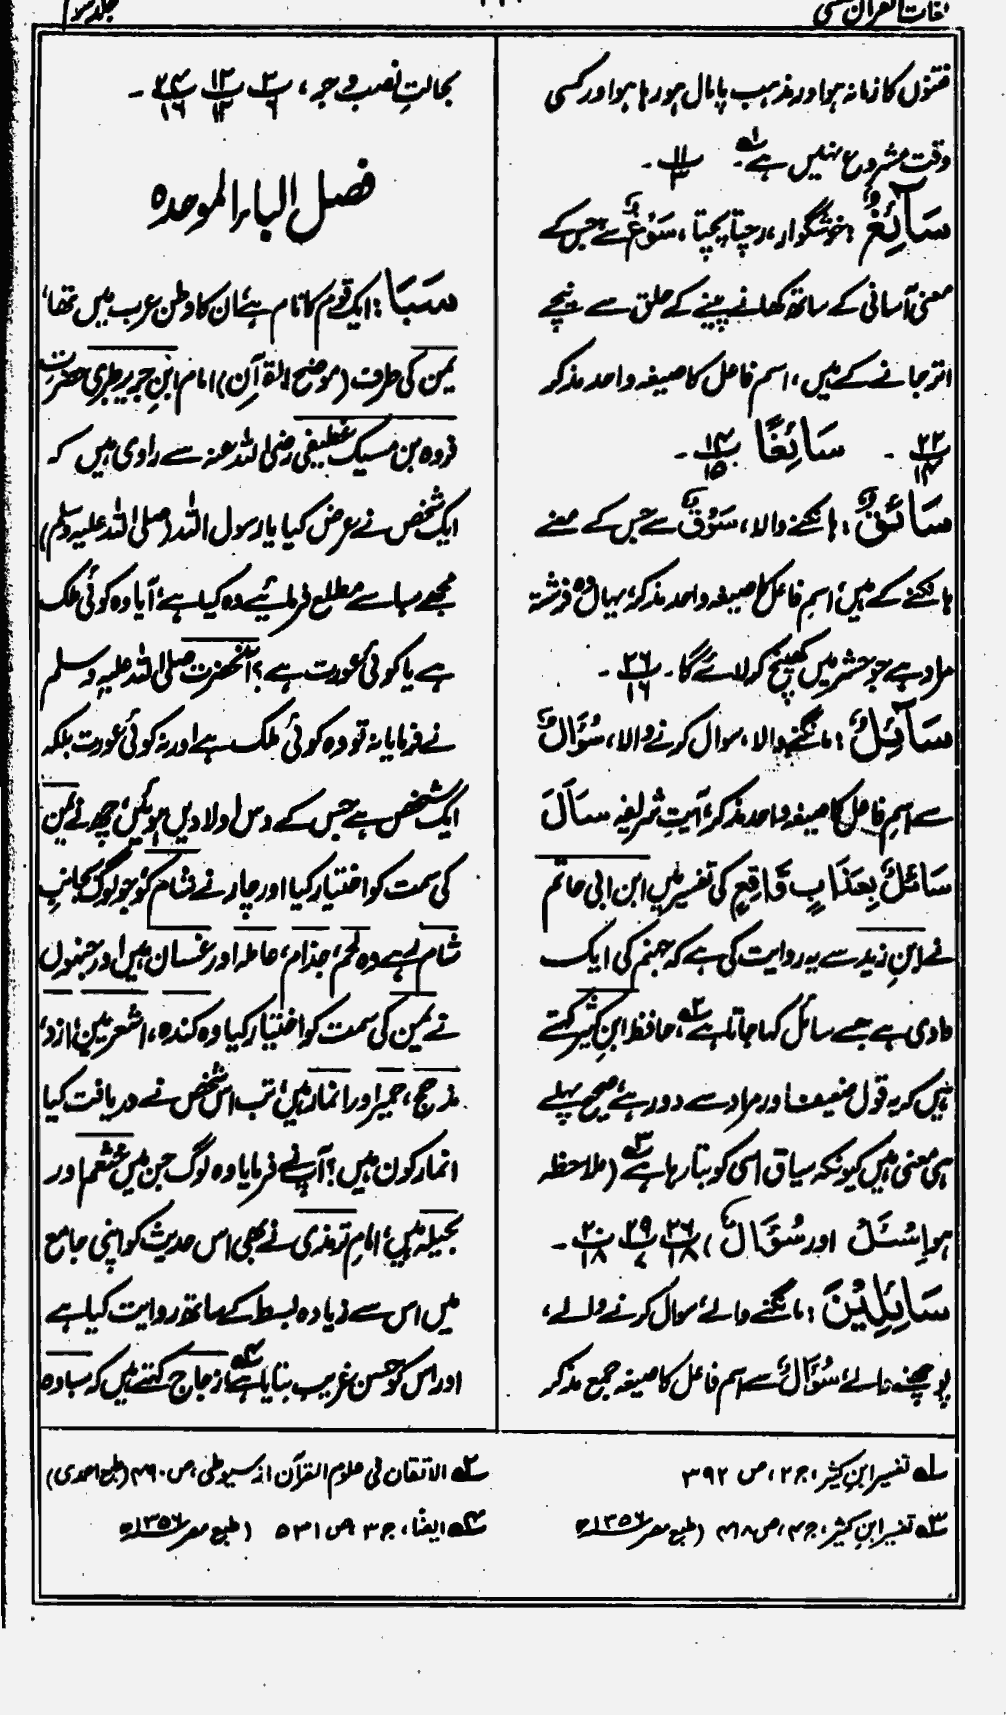 لغات القرآن
جلد سوم
فتنوں کا زمانہ ہو اور مذہب پامال ہو رہا ہو اور کسی
وقت مشروع نہیں ہے ۱؎۔ ۱۱
سَآئِغٌ : خوشگوار، رچتا پچتا، سَوْغٌ سے جس کے
معنی آسانی کے ساتھ کھانے پینے کے حلق سے نیچے
اتر جانے کے ہیں، اسم فاعل کا صیغہ واحد مذکر
۲۲/۱۴ ۔ سَآئِغًا پ۱۴/۱۵ ۔
سَآئِقٌ : ہانکنے والا، سَوْقٌ سے جس کے معنے
ہانکنے کے ہیں، اسمِ فاعل کا صیغہ واحد مذکر، یہاں وہ فرشتہ
مراد ہے جو حشر میں کھینچ کر لائے گا۔ پ۲۶/۱۶ ۔
سَآئِلٌ : مانگنے والا، سوال کرنے والا، سُؤَالٌ
سے اسمِ فاعل کا صیغہ واحد مذکر، آیتِ شریفہ سَأَلَ
سَائِلٌ بِعَذَابٍ وَّاقِعٍ کی تفسیر میں ابن ابی حاتم
نے ابنِ زید سے یہ روایت کی ہے کہ جہنم کی ایک
وادی ہے جسے سائل کہا جاتا ہے ۲؎، حافظ ابنِ کثیر کہتے
ہیں کہ یہ قول ضعیف اور مراد سے دور ہے، صحیح پہلے
ہی معنی ہیں کیونکہ سیاق اسی کو بتا رہا ہے ۳؎ (ملاحظہ
ہو اِسْئَلْ اور سُؤَالٌ) پ۲۶/۱۸ پ۲۹/۷ پ۳۰/۱۸ ۔
سَآئِلِیْنَ : مانگنے والے، سوال کرنے والے،
پوچھنے والے، سُؤَالٌ سے اسم فاعل کا صیغہ جمع مذکر
بحالتِ نصب و جر، پ۲/۶ پ۱۲/۱۲ پ۲۴/۱۶ ۔
فصل الباء الموحدہ
سَبَا : ایک قوم کا نام ہے، ان کا وطن عرب میں تھا،
یمن کی طرف (موضح القرآن) امام ابنِ جریر طبری حضرت
فروہ بن مسیک غطیفی رضی اللہ عنہ سے راوی ہیں کہ
ایک شخص نے عرض کیا یا رسول اللہ (صلی اللہ علیہ وسلم)
مجھے سبا سے مطلع فرمائیے وہ کیا ہے، آیا وہ کوئی ملک
ہے یا کوئی عورت ہے؟ آنحضرت صلی اللہ علیہ وسلم
نے فرمایا نہ تو وہ کوئی ملک ہے اور نہ کوئی عورت بلکہ
ایک شخص ہے جس کے دس اولادیں ہوئیں، چھ نے یمن
کی سمت کو اختیار کیا اور چار نے شام کو، جو لوگ بجانبِ
شام رہے وہ لخم، جذام، عاملہ اور غسان ہیں اور جنہوں
نے یمن کی سمت کو اختیار کیا وہ کندہ، اشعریین، ازد،
مذحج، حمیر اور انمار ہیں، تب اس شخص نے دریافت کیا
انمار کون ہیں؟ آپ نے فرمایا وہ لوگ جن میں خثعم اور
بجیلہ ہیں، امام ترمذی نے بھی اس حدیث کو اپنی جامع
میں اس سے زیادہ بسط کے ساتھ روایت کیا ہے
اور اس کو حسن غریب بتایا ہے ۴؎ زجاج کہتے ہیں کہ سبا وہ
۱؎ تفسیر ابنِ کثیر، ج ۲، ص ۳۹۲
۲؎ الاتقان فی علوم القرآن از سیوطی، ص ۴۹۰ (طبع احمدی)
۳؎ تفسیر ابنِ کثیر، ج ۴، ص ۴۱۸ (طبع مصر ۱۳۵۶ھ)
۴؎ ایضاً، ج ۳ ص ۵۳۱ (طبع مصر ۱۳۵۶ھ)